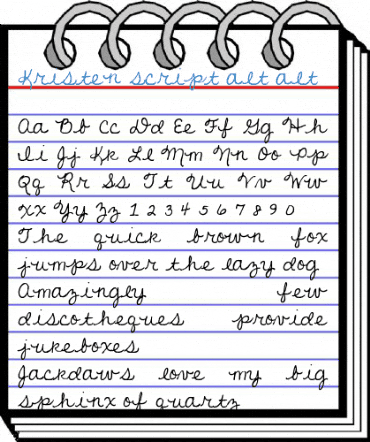 Kristen script alt alt
Aa Bb Cc Dd Ee Ff Gg Hh
Ii Jj Kk Ll Mm Nn Oo Pp
Qq Rr Ss Tt Uu Vv Ww
Xx Yy Zz 1 2 3 4 5 6 7 8 9 0
The quick brown fox
jumps over the lazy dog
Amazingly few
discotheques provide
jukeboxes
Jackdaws love my big
sphinx of quartz